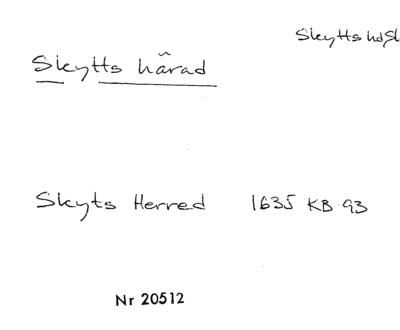 Skytts hdsl
Skytts härad
Skyts Herred 1635 KB 93
Nr 20512